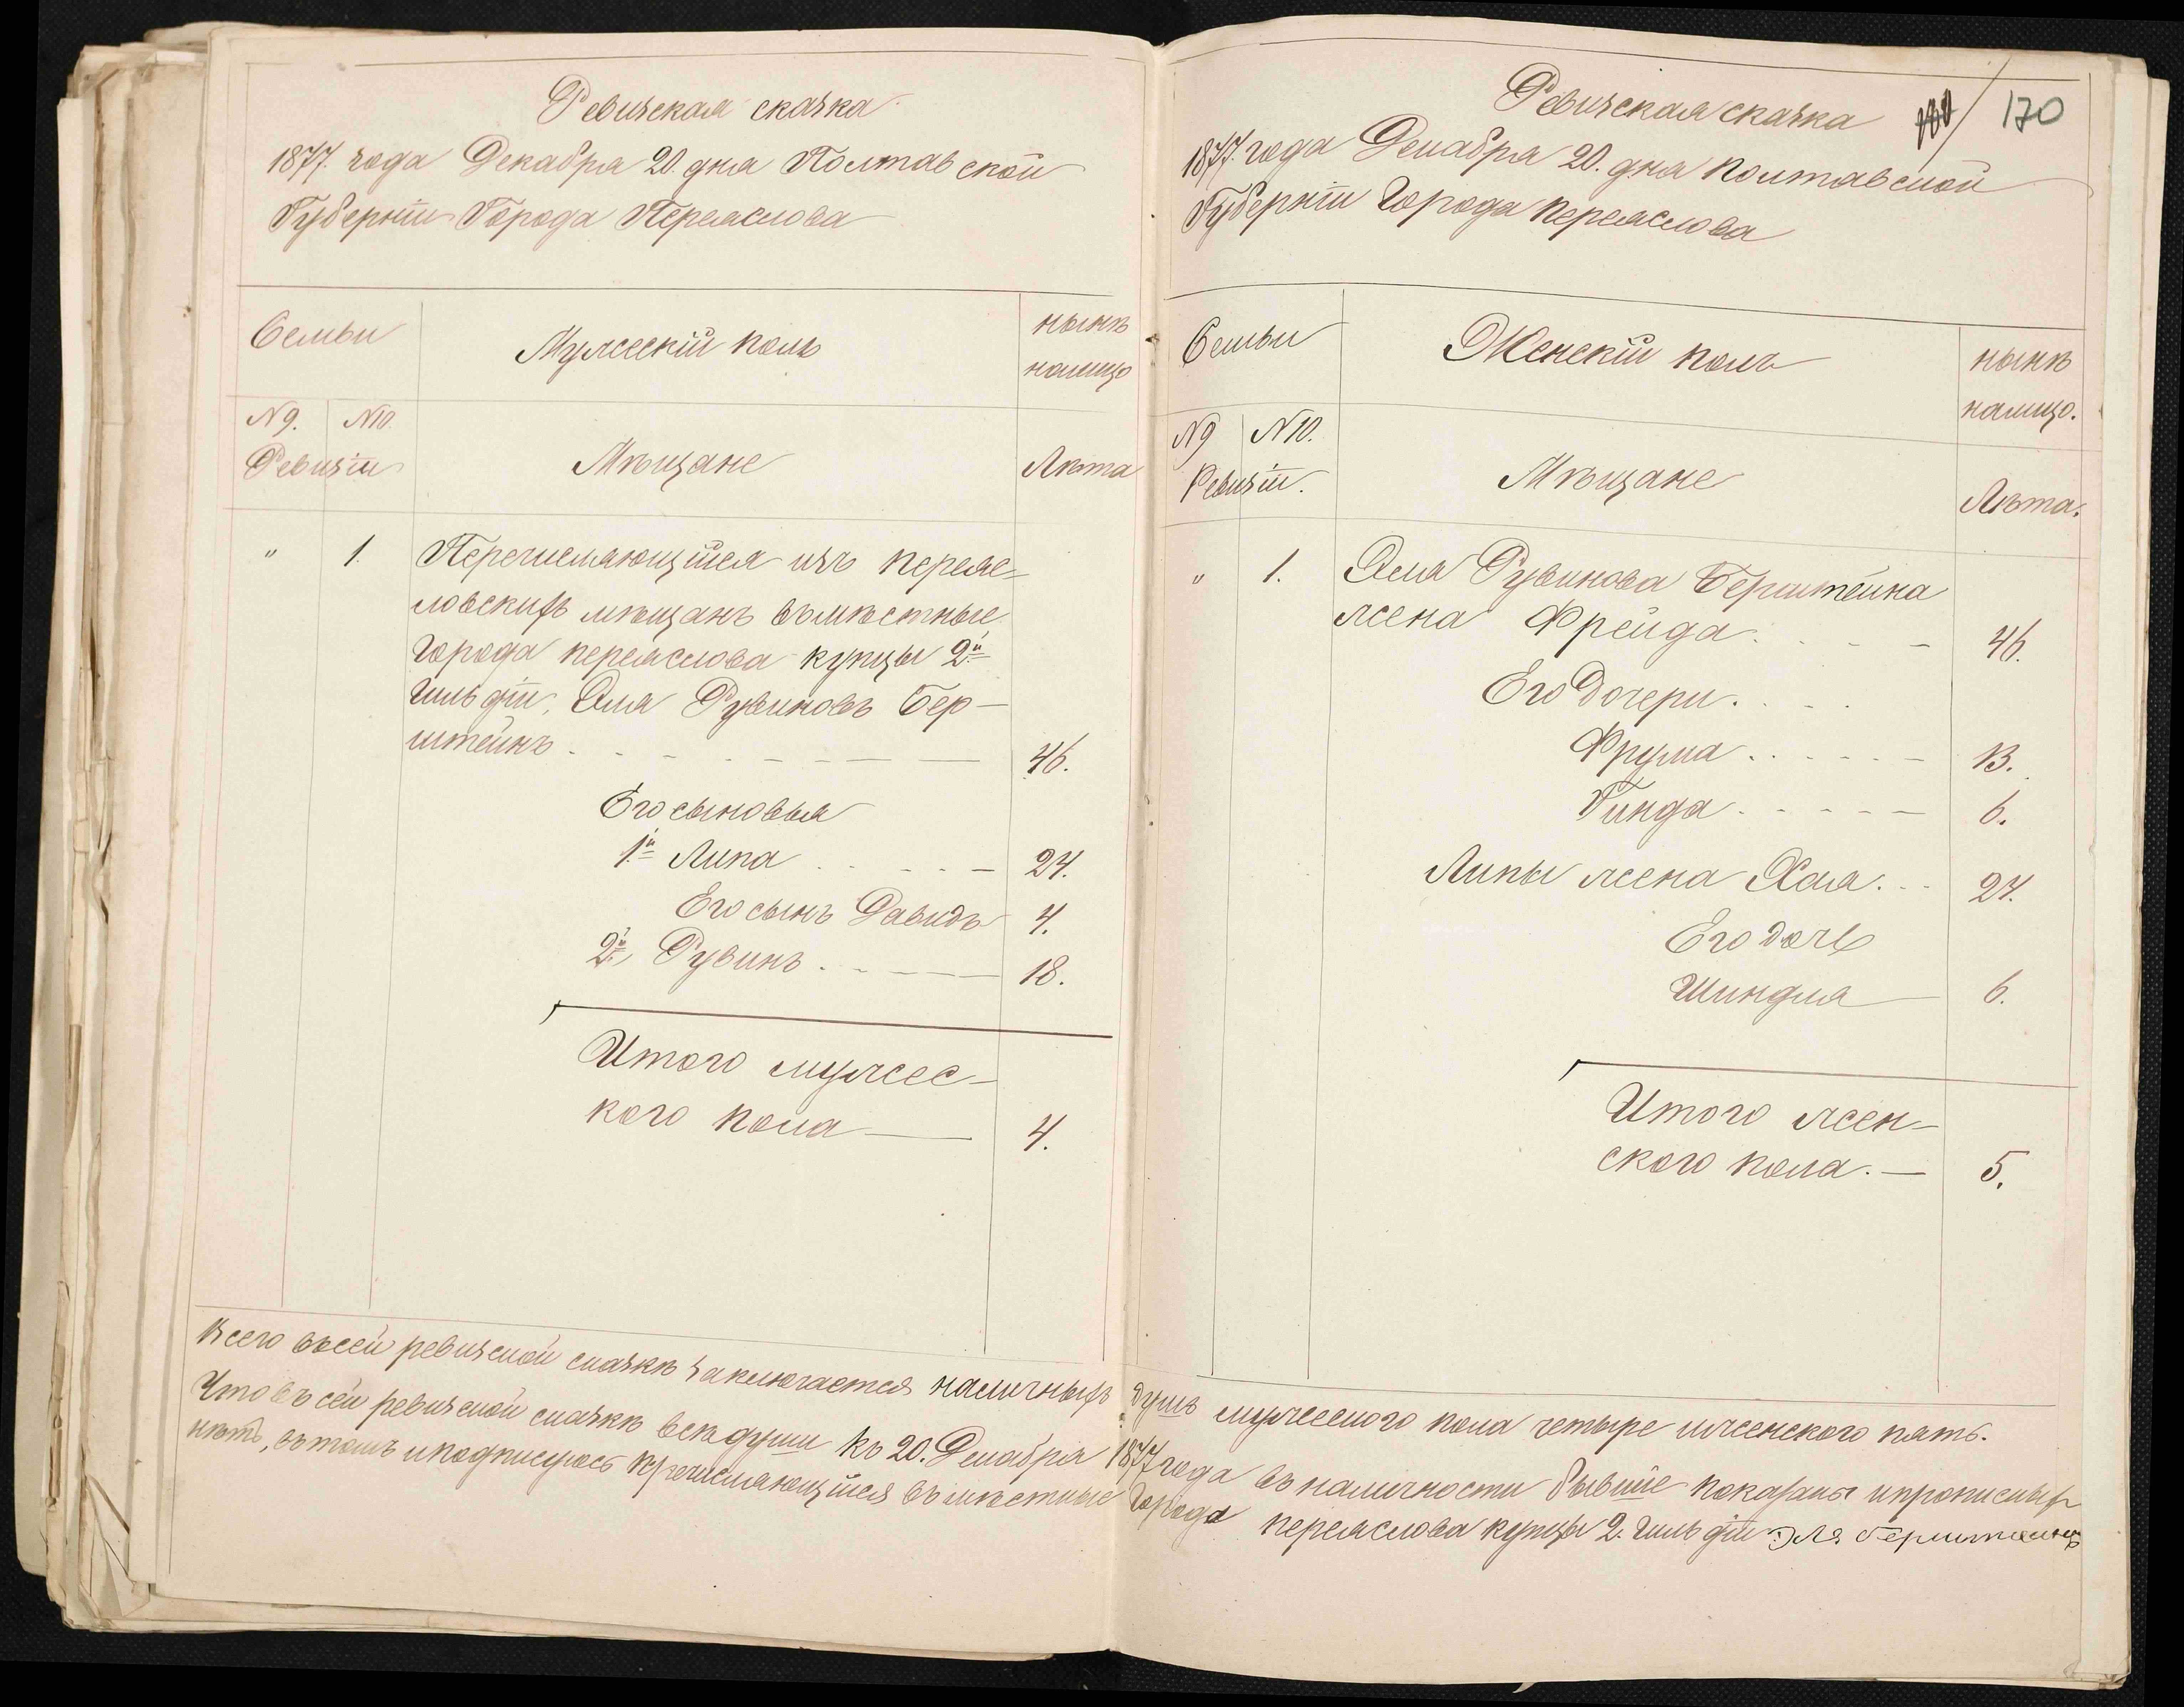 Ревизская сказка
1877. года Декабря 20. дня Полтавской
Губерніи Города Переяслова
Семьи
Мужескій полъ
нынѣ
налицо
N 9.
N 10.
Ревизіи
Мѣщане
Лѣта
" 1. Перечисляющійся изъ переяс-
ловскихъ мѣщанъ въ мѣстные
города переяслова купцы 2й
гильдіи, Эля Рувиновъ Бер-
штейнъ 46.
Его сыновья
1й Липа 24.
Его сынъ Давидъ 4.
2й, Рувинъ 18.
Итого мужес-
кого пола 4.
Ревизская сказка
170
1877. года Декабря 20. дня полтавской
Губерніи Города переяслова
Семьи
Женскій полъ
нынѣ
налицо.
N 9
N 10.
Ревизіи.
Мѣщане
Лѣта.
" 1. Эля Рувинова Берштейна
жена Фрейда 46.
Его Дочери.
Фрума 13.
Гинда 6.
Липы жена Хая 24.
Его дочь
Шиндля 6.
Итого жен-
ского пола. 5.
Всего въсей ревизской сказкѣ заключается наличныхъ душъ мужеского пола четыре иженского пять.
Что въ сей ревизской сказкѣ всѣ души къ 20. Декабря 1877 года въ наличности бывшіе показаны ипрописныхъ
нѣтъ, въ томъ иподписуюсь перечисляющійся въ мѣстные города переяслова купцы 2. гильдіи Эля Берштейнъ